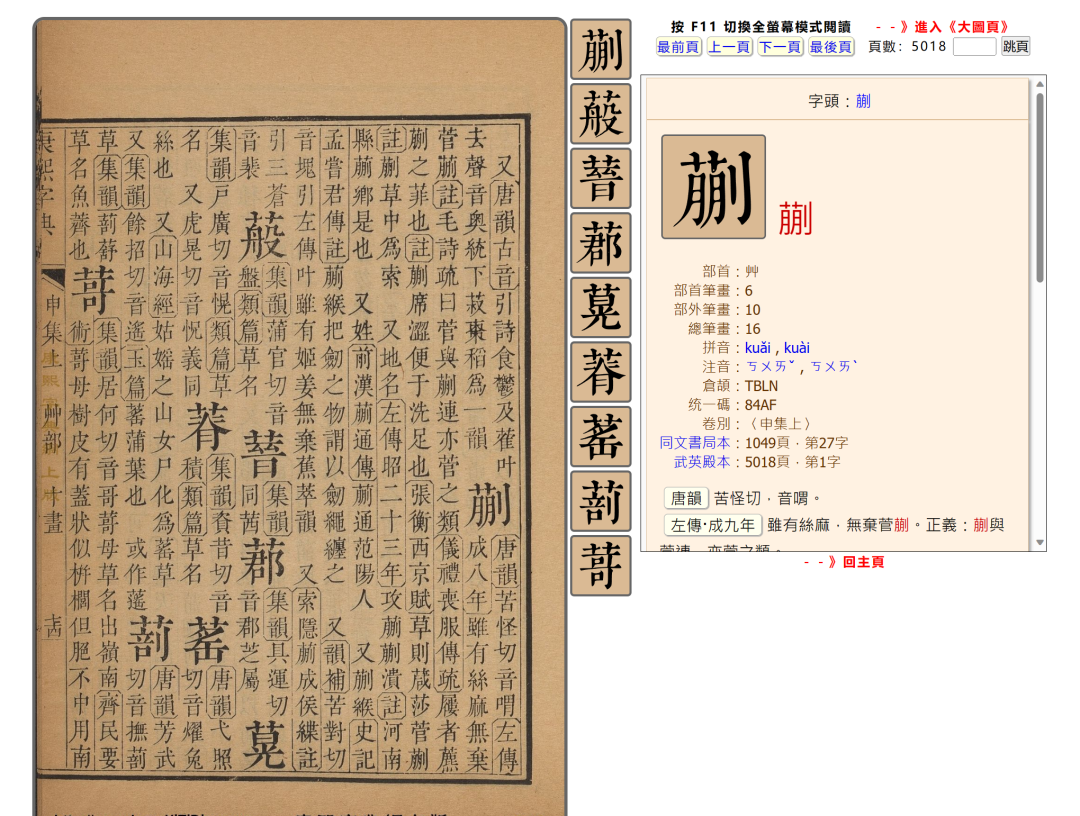 按 F11 切換全螢幕模式閱讀 - - 》進入《大圖頁》
最前頁 上一頁 下一頁 最後頁 頁數: 5018 跳頁
又唐韻古音引詩食鬱及叶
去聲音奥統下菽棗稻爲一韻
蒯
唐韻苦怪切音喟左傳
成八年雖有絲麻無棄
菅蒯註毛詩疏曰菅與蒯連亦菅之類儀禮喪服傳疏屨者藨
蒯之菲也註蒯席澀便于洗足也張衡西京賦草則葴莎菅蒯
註蒯草中爲索 又地名左傳昭二十三年攻蒯蒯潰註河南
縣蒯鄉是也 又姓前漢蒯通傳蒯通范陽人 又蒯緱史記
孟嘗君傳註蒯緱把劒之物謂以劒繩纏之 又韻補苦對切
音塊引左傳叶雖有姬姜無棄蕉萃韻 又索隱蒯成侯緤註
引三蒼
音裴
蒰
集韻蒲官切音
盤類篇草名
集韻
同茜
集韻具運切
音郡芝屬
集韻戶廣切音愰類篇草
名 又虎晃切音怳義同
集韻資昔切音
積類篇草名
䔄
唐韻弋照
切音燿兔
絲也 又山海經姑媱之山女尸化爲䔄草
又集韻餘招切音遙玉篇䔄蒲葉也 或作蘨
唐韻芳武
切音撫
草集韻
草名魚薺也
集韻居何切音哥母草名出嶺南齊民要
術母樹皮有蓋狀似栟櫚但脃不中用南
康熙字典
申集上 艸部 十畫
蒯
蒰
䔄
字頭：蒯
蒯
蒯
部首：艸
部首筆畫：6
部外筆畫：10
總筆畫：16
拼音：kuǎi , kuài
注音：ㄎㄨㄞˇ , ㄎㄨㄞˋ
倉頡：TBLN
统一碼：84AF
卷別：〈申集上〉
同文書局本：1049頁．第27字
武英殿本：5018頁．第1字
唐韻 苦怪切．音喟。
左傳·成九年 雖有絲麻．無棄菅蒯。正義：蒯與
菅連．亦菅之類。
- - 》回主頁